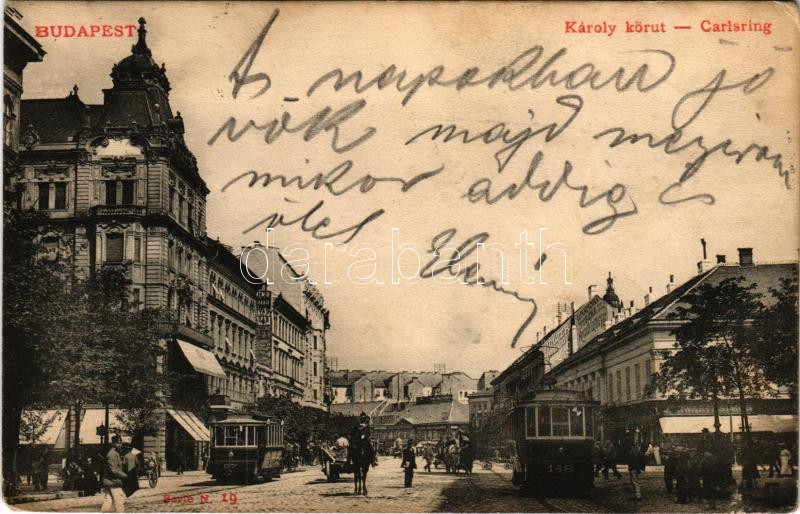 BUDAPEST
Károly körut — Carlsring
A napokban jö
vök majd megirom
mikor addig is
ölel
darabanth
148
Serie N. 19